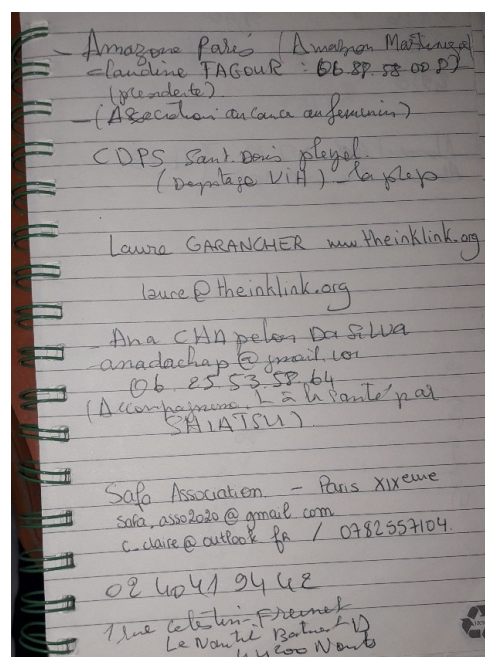 - Amazone Paris (Amazon Martinique)
- Claudine TAGOUR : 06
(présidente)
- (Association cancer au feminin)
CDPS Saint. Denis pleyel.
(Depistage ViH) - la prep
Laure GARANCHER www.theinklink.org
laure@theinklink.org
Ana CHApelon Da SiLVA
- anadachap@gmail.com
06. 25 53.58.64
(Accompagnement à la santé par
SHIATSU)
Safa Association - Paris XIXeme
safa.asso2020@gmail com
c_claire@outlook fr / 0782557104.
02 4041 94 42
1 rue Celestin-Freinet
Le Nantil Batiment D
44200 Nantes